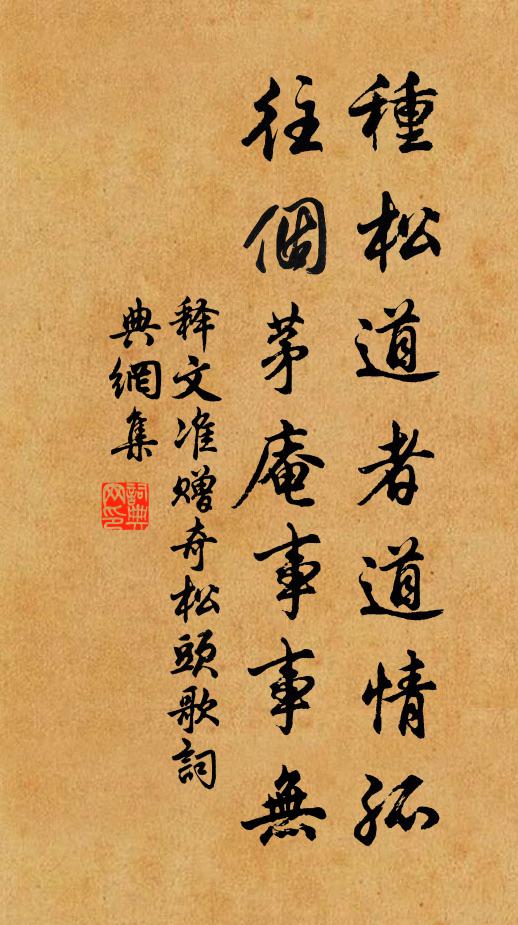 種松道者道情孤
往個茅庵事事無
释文准赠奇松頭歌詞
典網集
詞典